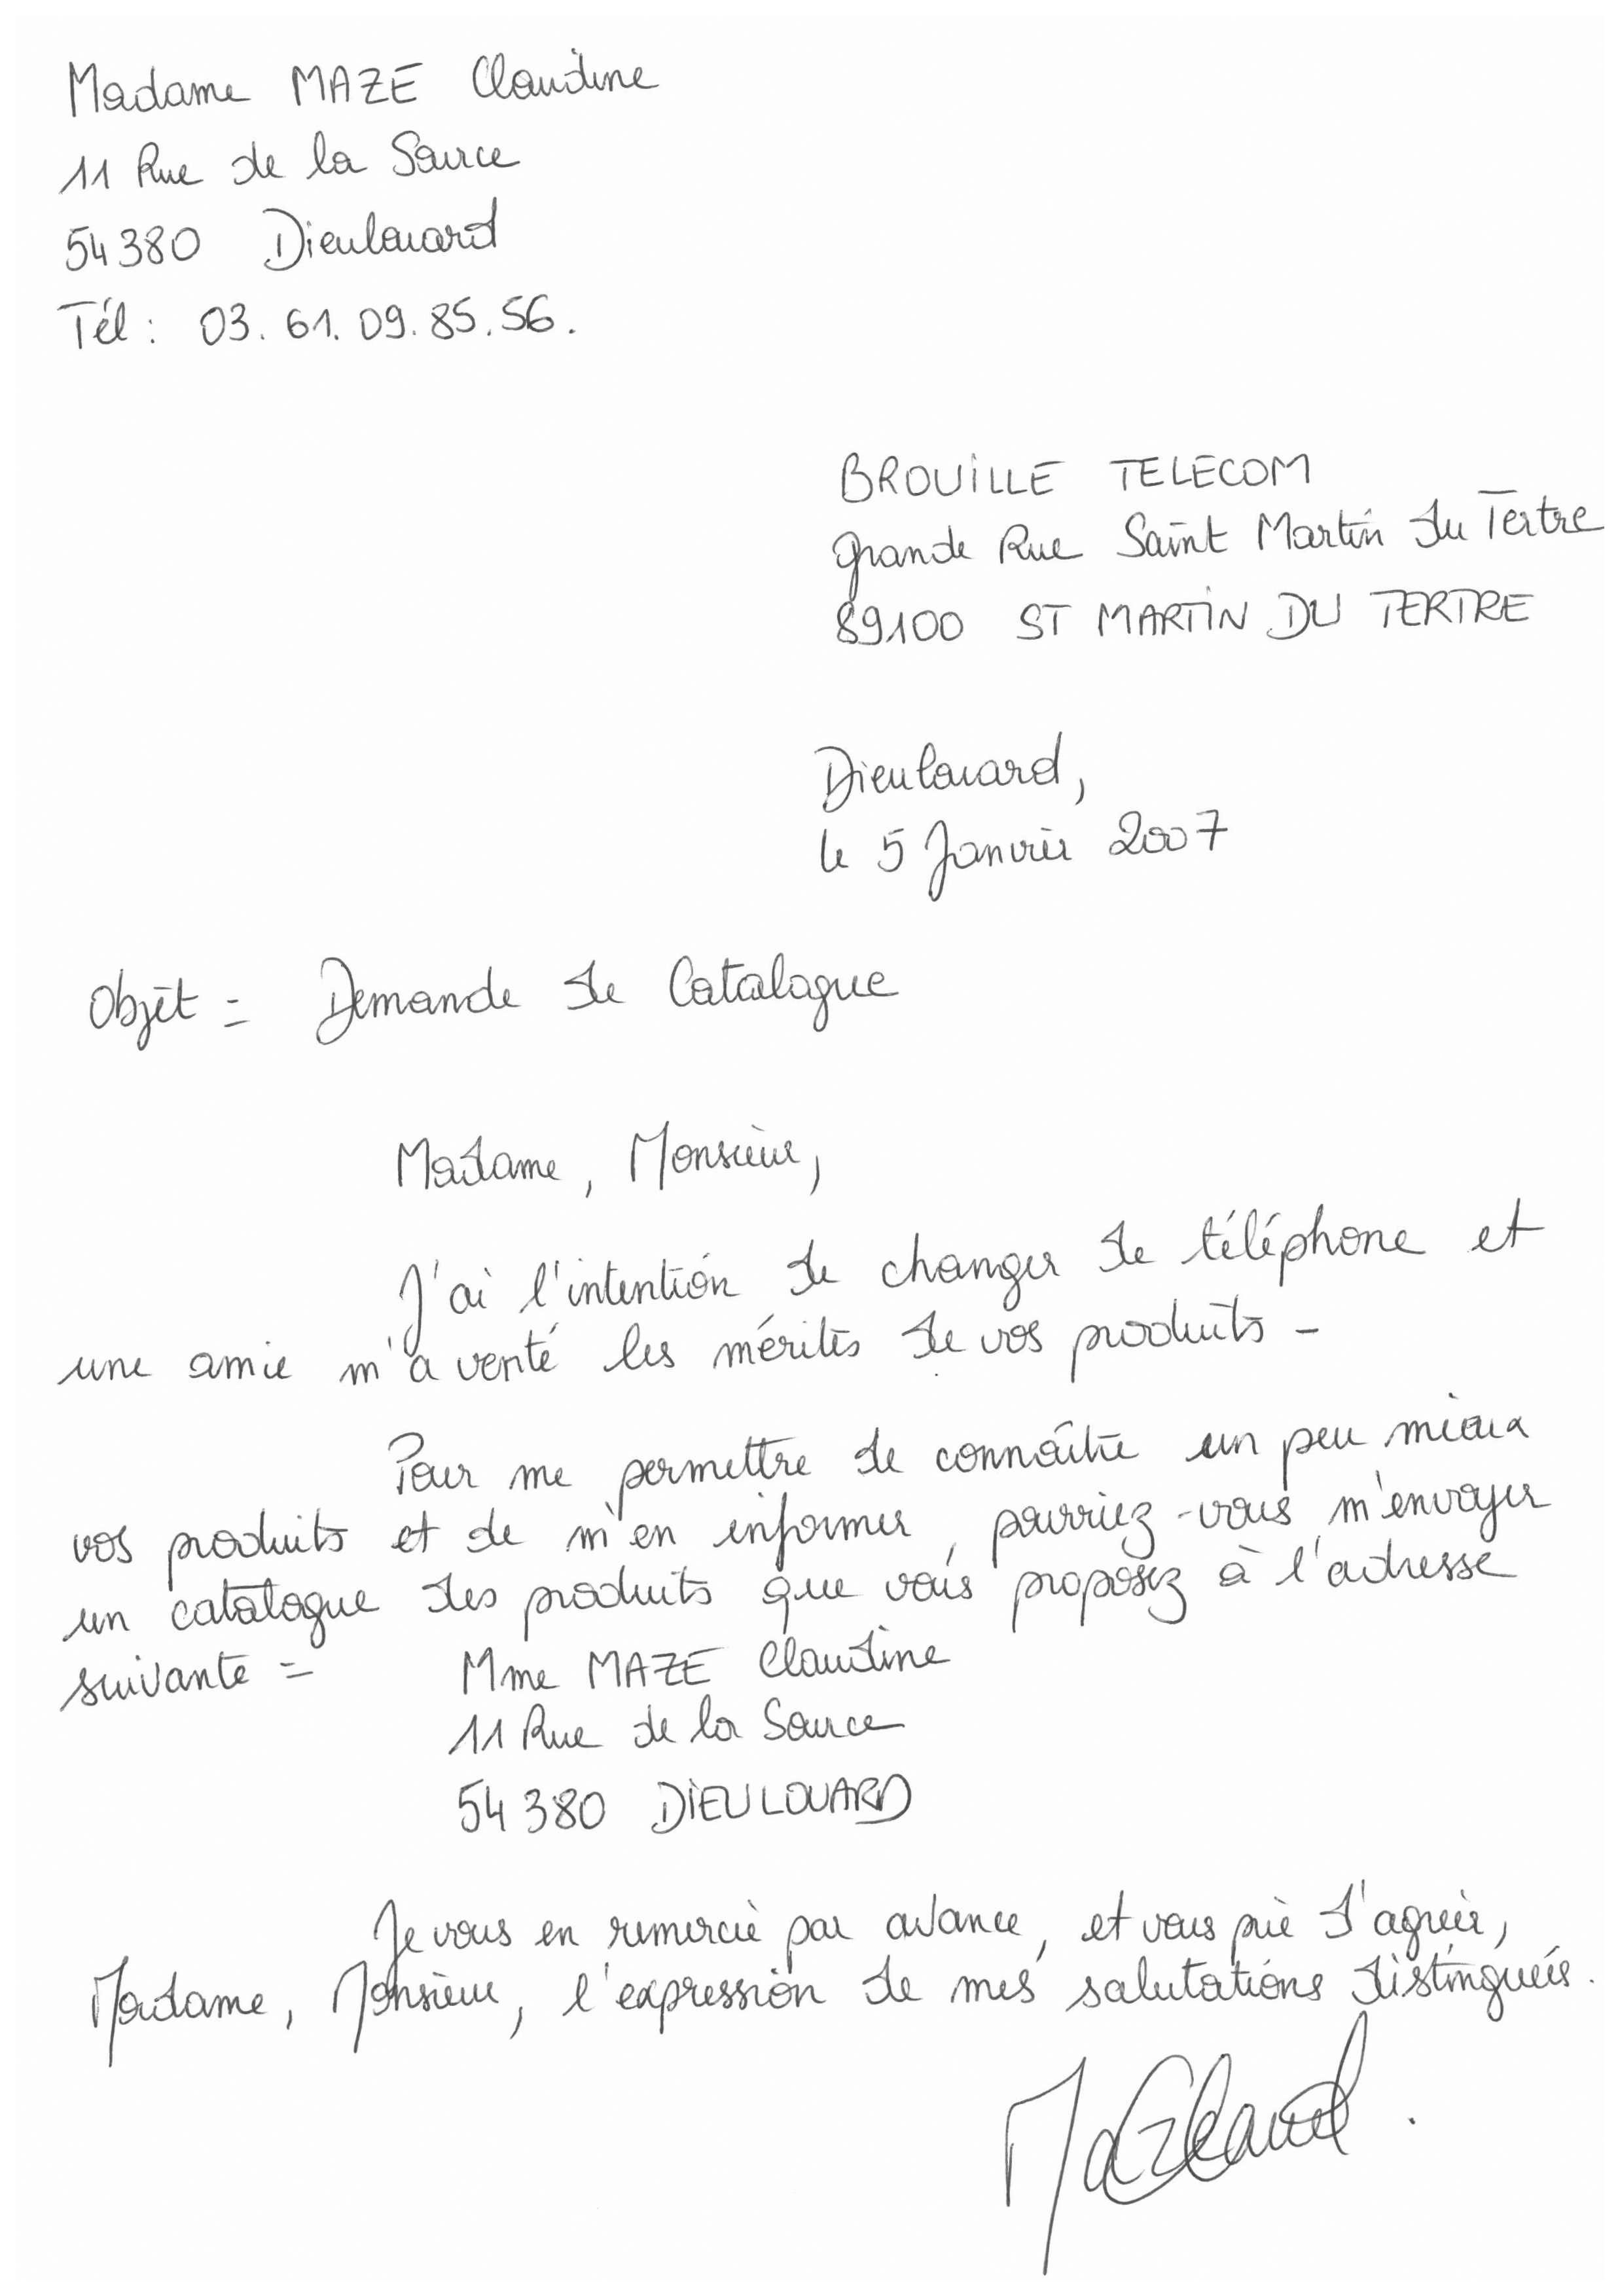 Madame MAZE Claudine
11 Rue de la Source
54380 Dieulouard
Tél : 03.61.09.85.56.
BROUILLE TELECOM
Grande Rue Saint Martin du Tertre
89100 ST MARTIN DU TERTRE
Dieulouard,
le 5 Janvier 2007
Objet = Demande de Catalogue
Madame, Monsieur,
J'ai l'intention de changer de téléphone et
une amie m'a venté les mérites de vos produits -
Pour me permettre de connaître un peu mieux
vos produits et de m'en informer, pourriez-vous m'envoyer
un catalogue des produits que vous proposez à l'adresse
suivante =
Mme MAZE Claudine
11 Rue de la Source
54380 DIEULOUARD
Je vous en remercie par avance, et vous prie d'agréer,
Madame, Monsieur, l'expression de mes salutations distinguées.